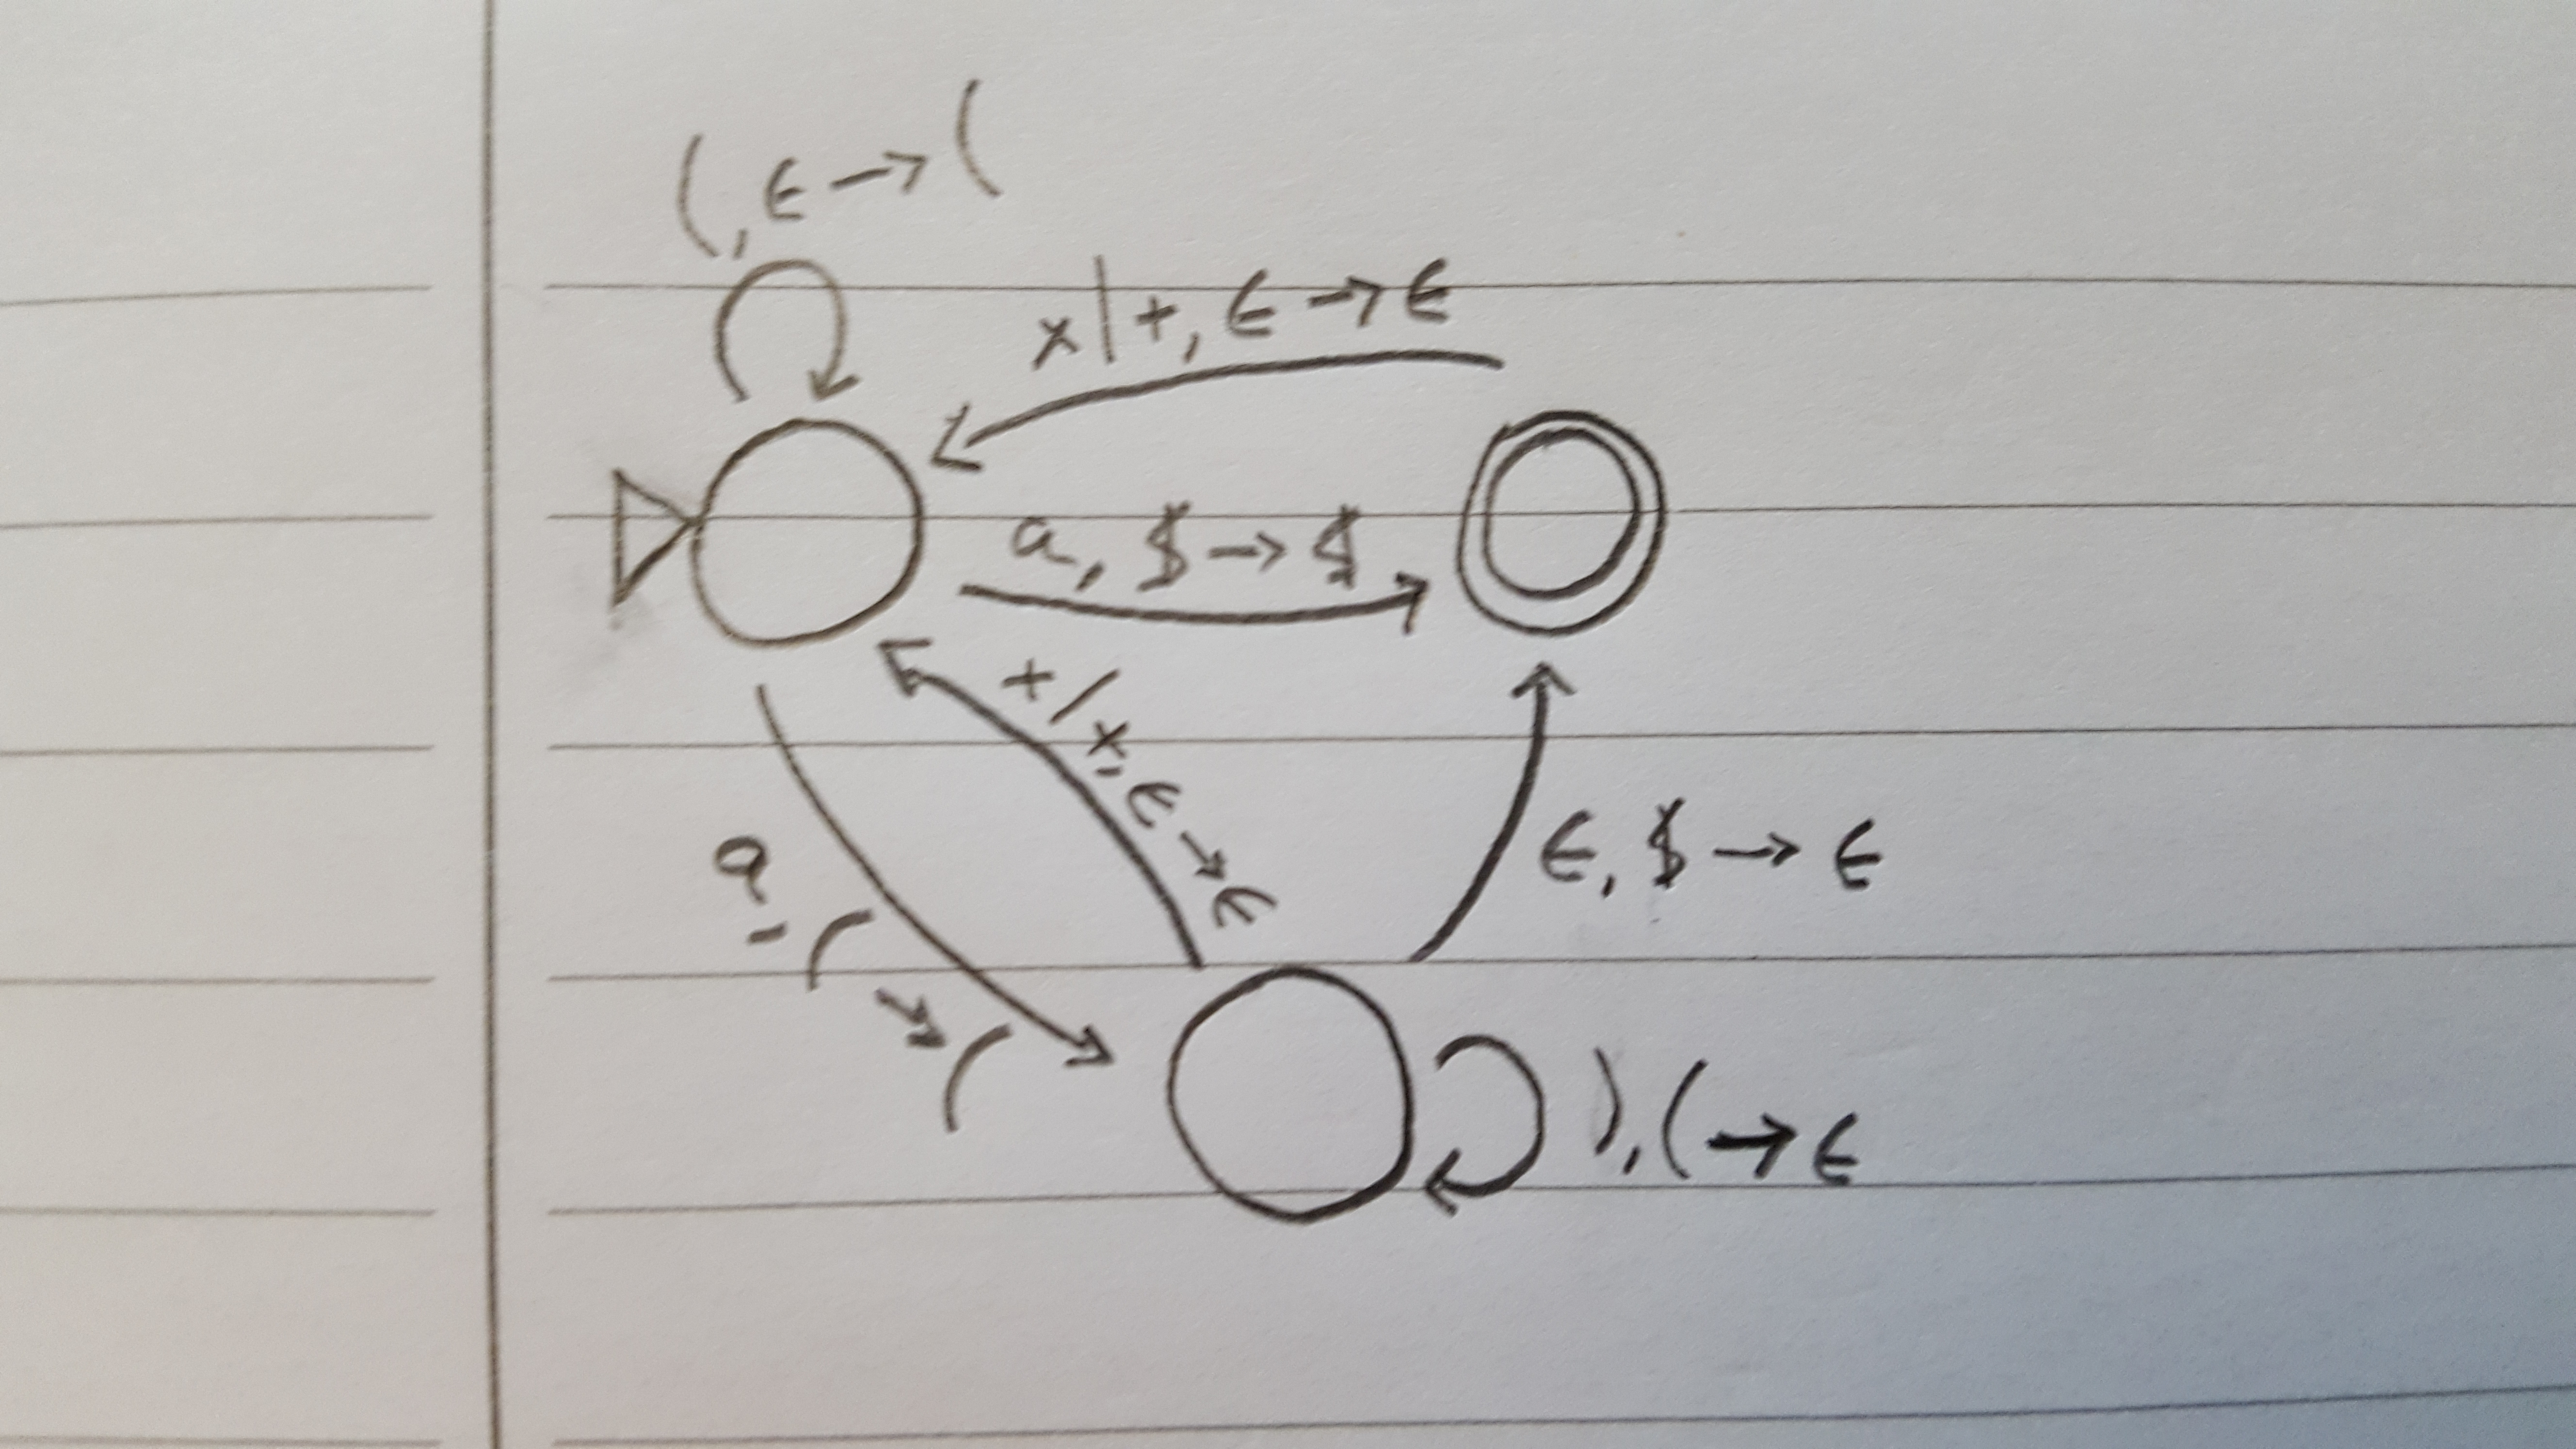 (, ϵ → (
x|+, ϵ → ϵ
a, $ → $
+/x, ϵ → ϵ
a, ( → (
ϵ, $ → ϵ
), ( → ϵ